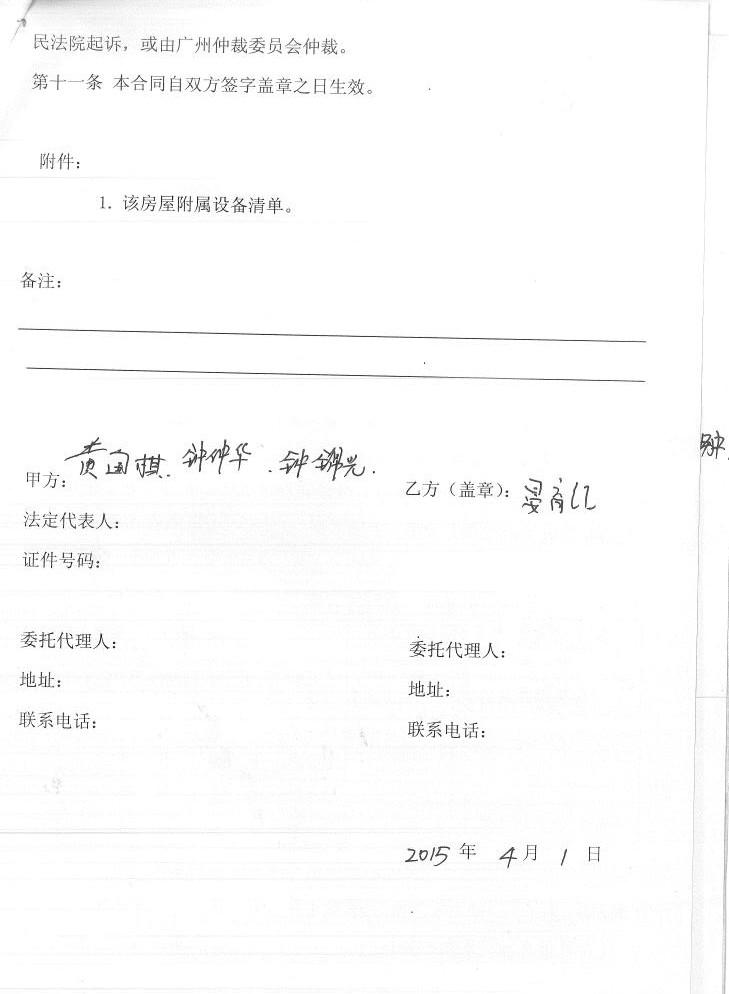 民法院起诉，或由广州仲裁委员会仲裁。
第十一条 本合同自双方签字盖章之日生效。
附件：
1. 该房屋附属设备清单。
备注：
甲方：黄国棋、钟仲华、钟锦光.
乙方（盖章）：
法定代表人：
证件号码：
委托代理人：
地址：
联系电话：
委托代理人：
地址：
联系电话：
2015 年 4 月 1 日